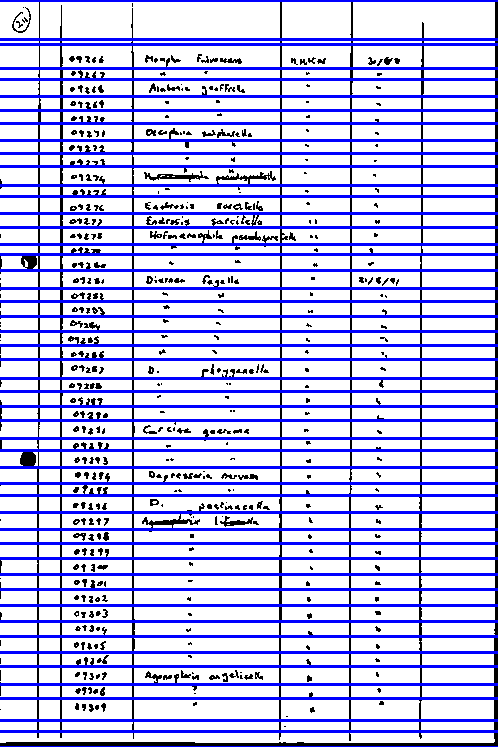 211
09266 Mompha fulvescens H.N.K.W 21/8/91
09267 " " " "
09268 Alabonia geoffrella " "
09269 " " " "
09270 " " " "
09271 Oecophora sulphurella " "
09272 " " " "
09273 " " " "
09274 pseudospretella " "
09275 " " " "
09276 Endrosis sarcitella " "
09277 Endrosis sarcitella " "
09278 Hofmannophila pseudospretella " "
09279 " " " "
09280 " " " "
09281 Diurnea fagella " 21/8/91
09282 " " " "
09283 " " " "
09284 " " " "
09285 " " " "
09286 " " " "
09287 D. phryganella " "
09288 " " " "
09289 " " " "
09290 " " " "
09291 Carcina quercana " "
09292 " " " "
09293 " " " "
09294 Depressaria nervosa " "
09295 " " " "
09296 D. pastinacella " "
09297 Agonopterix " "
09298 " " "
09299 " " "
09300 " " "
09301 " " "
09302 " " "
09303 " " "
09304 " " "
09305 " " "
09306 " " "
09307 Agonopterix angelicella " "
09308 ? " "
09309 " " "